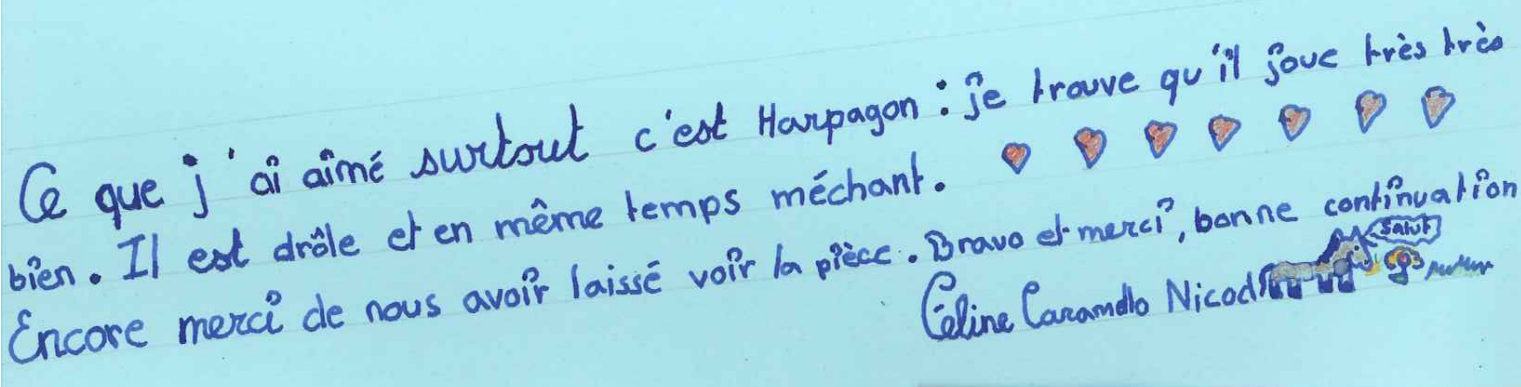 Ce que j'ai aimé surtout c'est Harpagon : je trouve qu'il joue très très
bien. Il est drôle et en même temps méchant.
Encore merci de nous avoir laissé voir la pièce. Bravo et merci, bonne continuation
SALUT
Céline Caramello Nicod